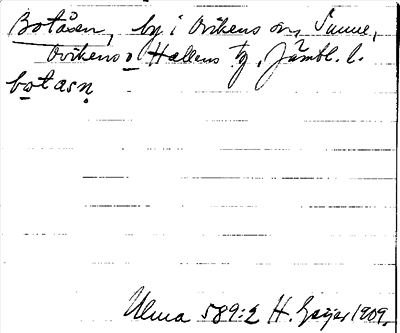 Botåsen, by i Ovikens sn, Sunne,
Ovikens o Hallens tg, Jämtl. l.
bọtasṇ
Ulma 589:2 H. Geijer 1909.